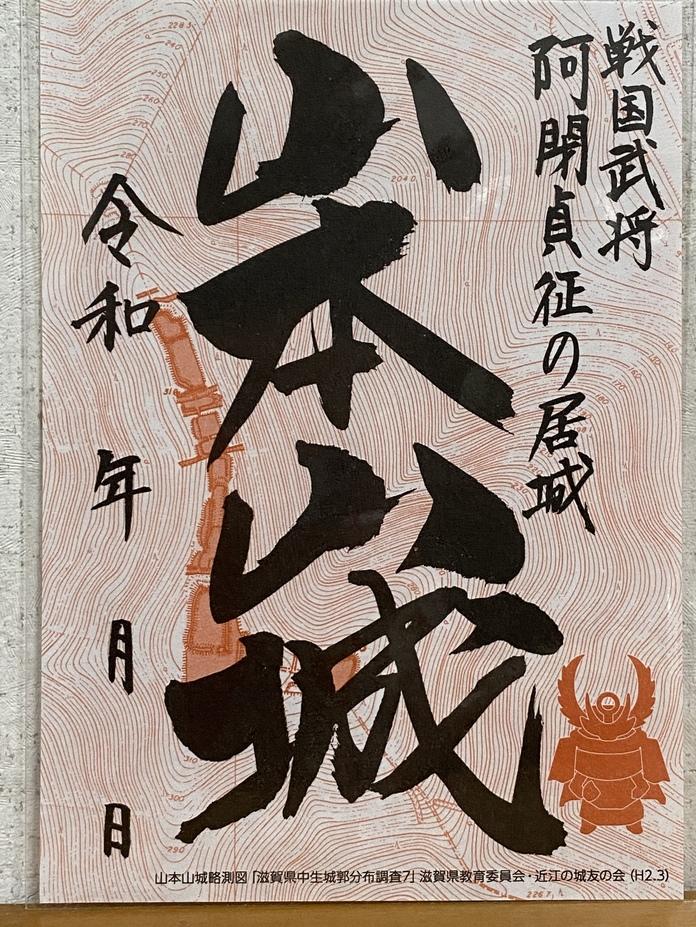 戦国武将
阿閉貞征の居城
山本山城
令和 年 月 日
山本山城略測図「滋賀県中生城郭分布調査7」滋賀県教育委員会・近江の城友の会 (H2.3)